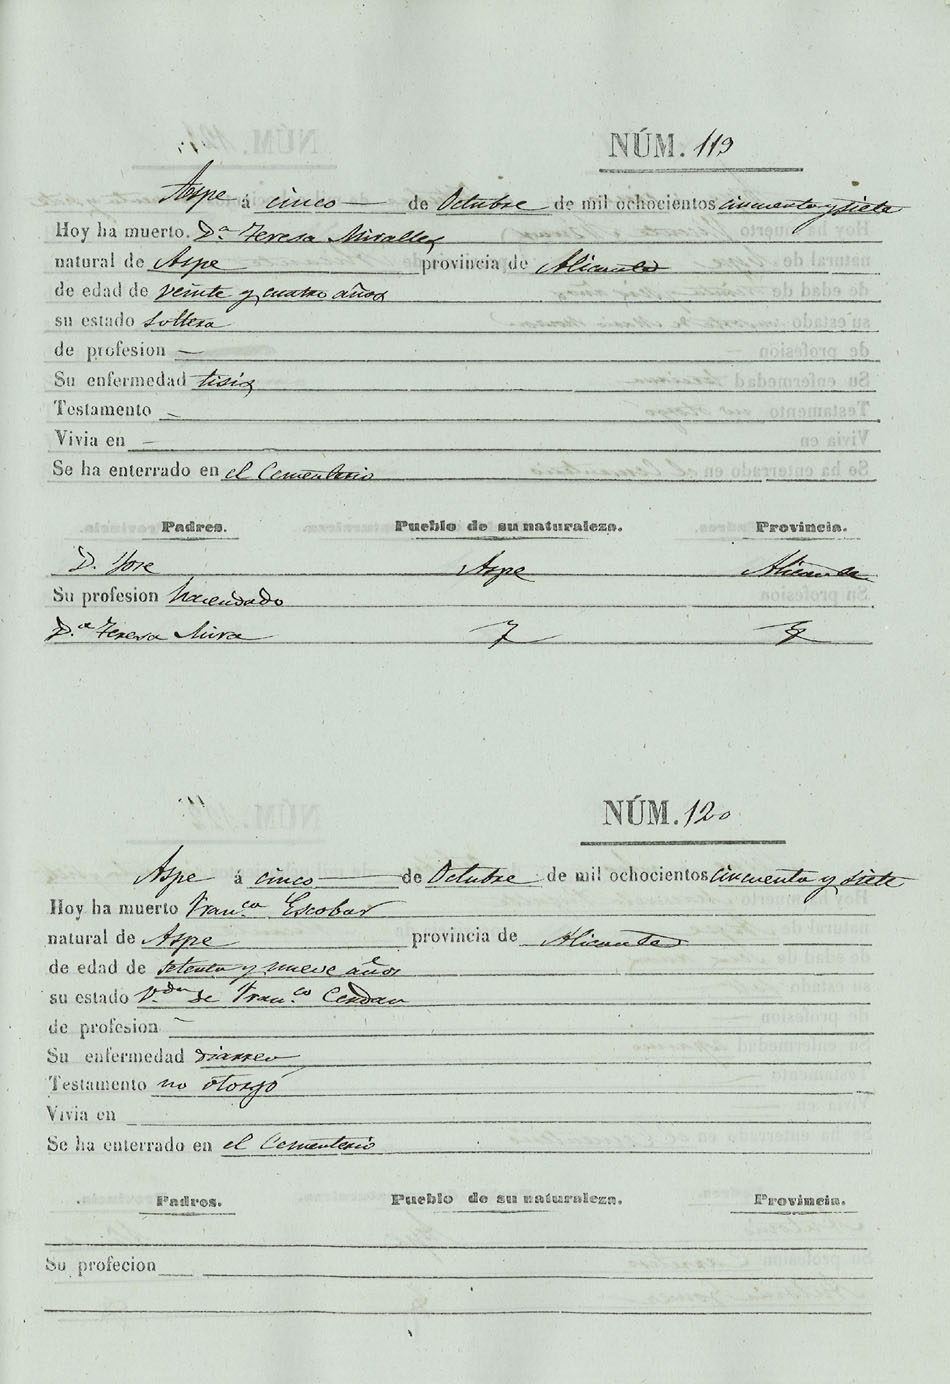 NÚM. 119
Aspe á cinco — de Octubre de mil ochocientos cincuenta y siete
Hoy ha muerto. D.ª Teresa Miralles
natural de Aspe provincia de Alicante
de edad de veinte y cuatro años
su estado Soltera
de profesion —
Su enfermedad tisis
Testamento —
Vivia en —
Se ha enterrado en el Cementerio
Padres. Pueblo de su naturaleza. Provincia.
D. Jose Aspe Alicante
Su profesion hacendado
D.ª Teresa Mira
NÚM. 120
Aspe á cinco — de Octubre de mil ochocientos cincuenta y siete
Hoy ha muerto Fran.ca Escobar
natural de Aspe provincia de Alicante
de edad de setenta y nueve años
su estado V.da de Fran.co Cerdan
de profesion —
Su enfermedad diarrea
Testamento no otorgó
Vivia en
Se ha enterrado en el Cementerio
Padres. Pueblo de su naturaleza. Provincia.
Su profecion